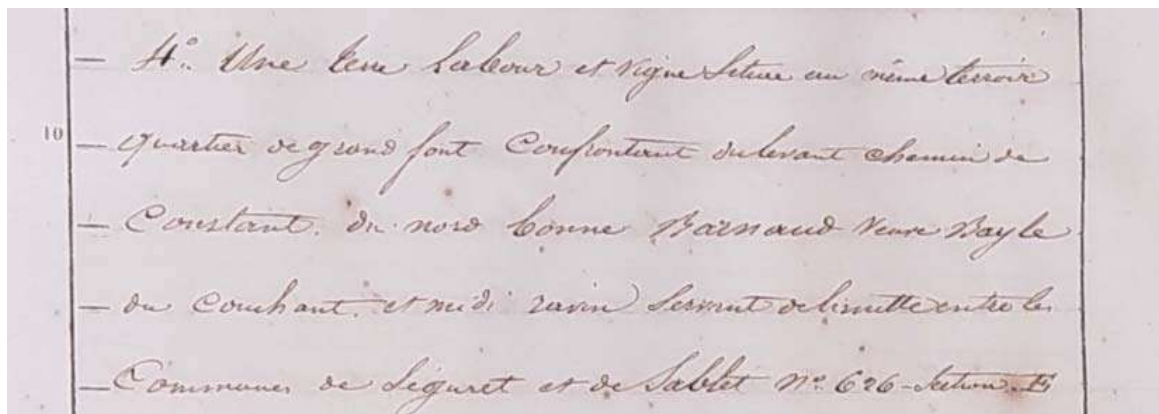 4°. Une terre labour et vigne Située au même terroir
10
quartier de grand font Confrontant du levant chemin de
Constant. du nord bonne Barnaud veuve Bayle
du Couchant. et midi ravin Servant de limitte entre les
Communes de Séguret et de Sablet N°. 626 - Section. E